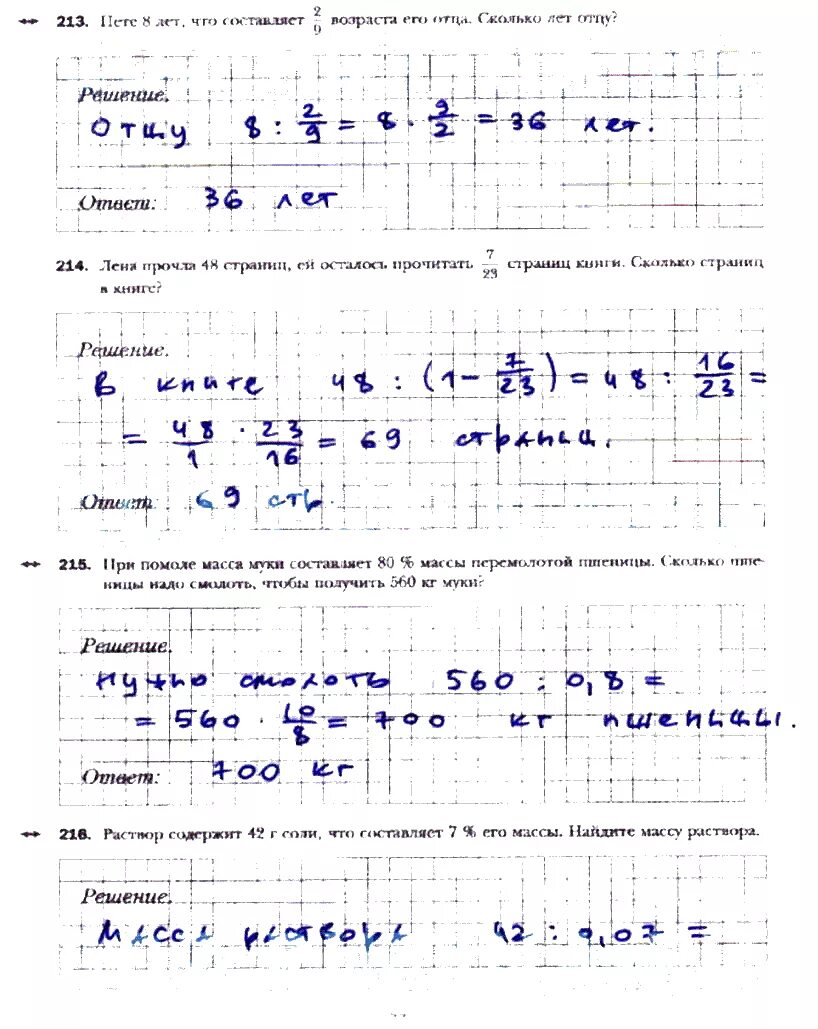 213. Пете 8 лет, что составляет 2/9 возраста его отца. Сколько лет отцу?
Решение.
Отцу 8 : 2/9 = 8 · 9/2 = 36 лет.
Ответ: 36 лет
214. Лена прочла 48 страниц, ей осталось прочитать 7/23 страниц книги. Сколько страниц
в книге?
Решение.
В книге 48 : (1 - 7/23) = 48 : 16/23 =
= 48/1 · 23/16 = 69 страниц.
Ответ: 69 стр.
215. При помоле масса муки составляет 80 % массы перемолотой пшеницы. Сколько пше-
ницы надо смолоть, чтобы получить 560 кг муки?
Решение.
Нужно смолоть 560 : 0,8 =
= 560 · 10/8 = 700 кг пшеницы.
Ответ: 700 кг
216. Раствор содержит 42 г соли, что составляет 7 % его массы. Найдите массу раствора.
Решение.
Масса раствора 42 : 0,07 =